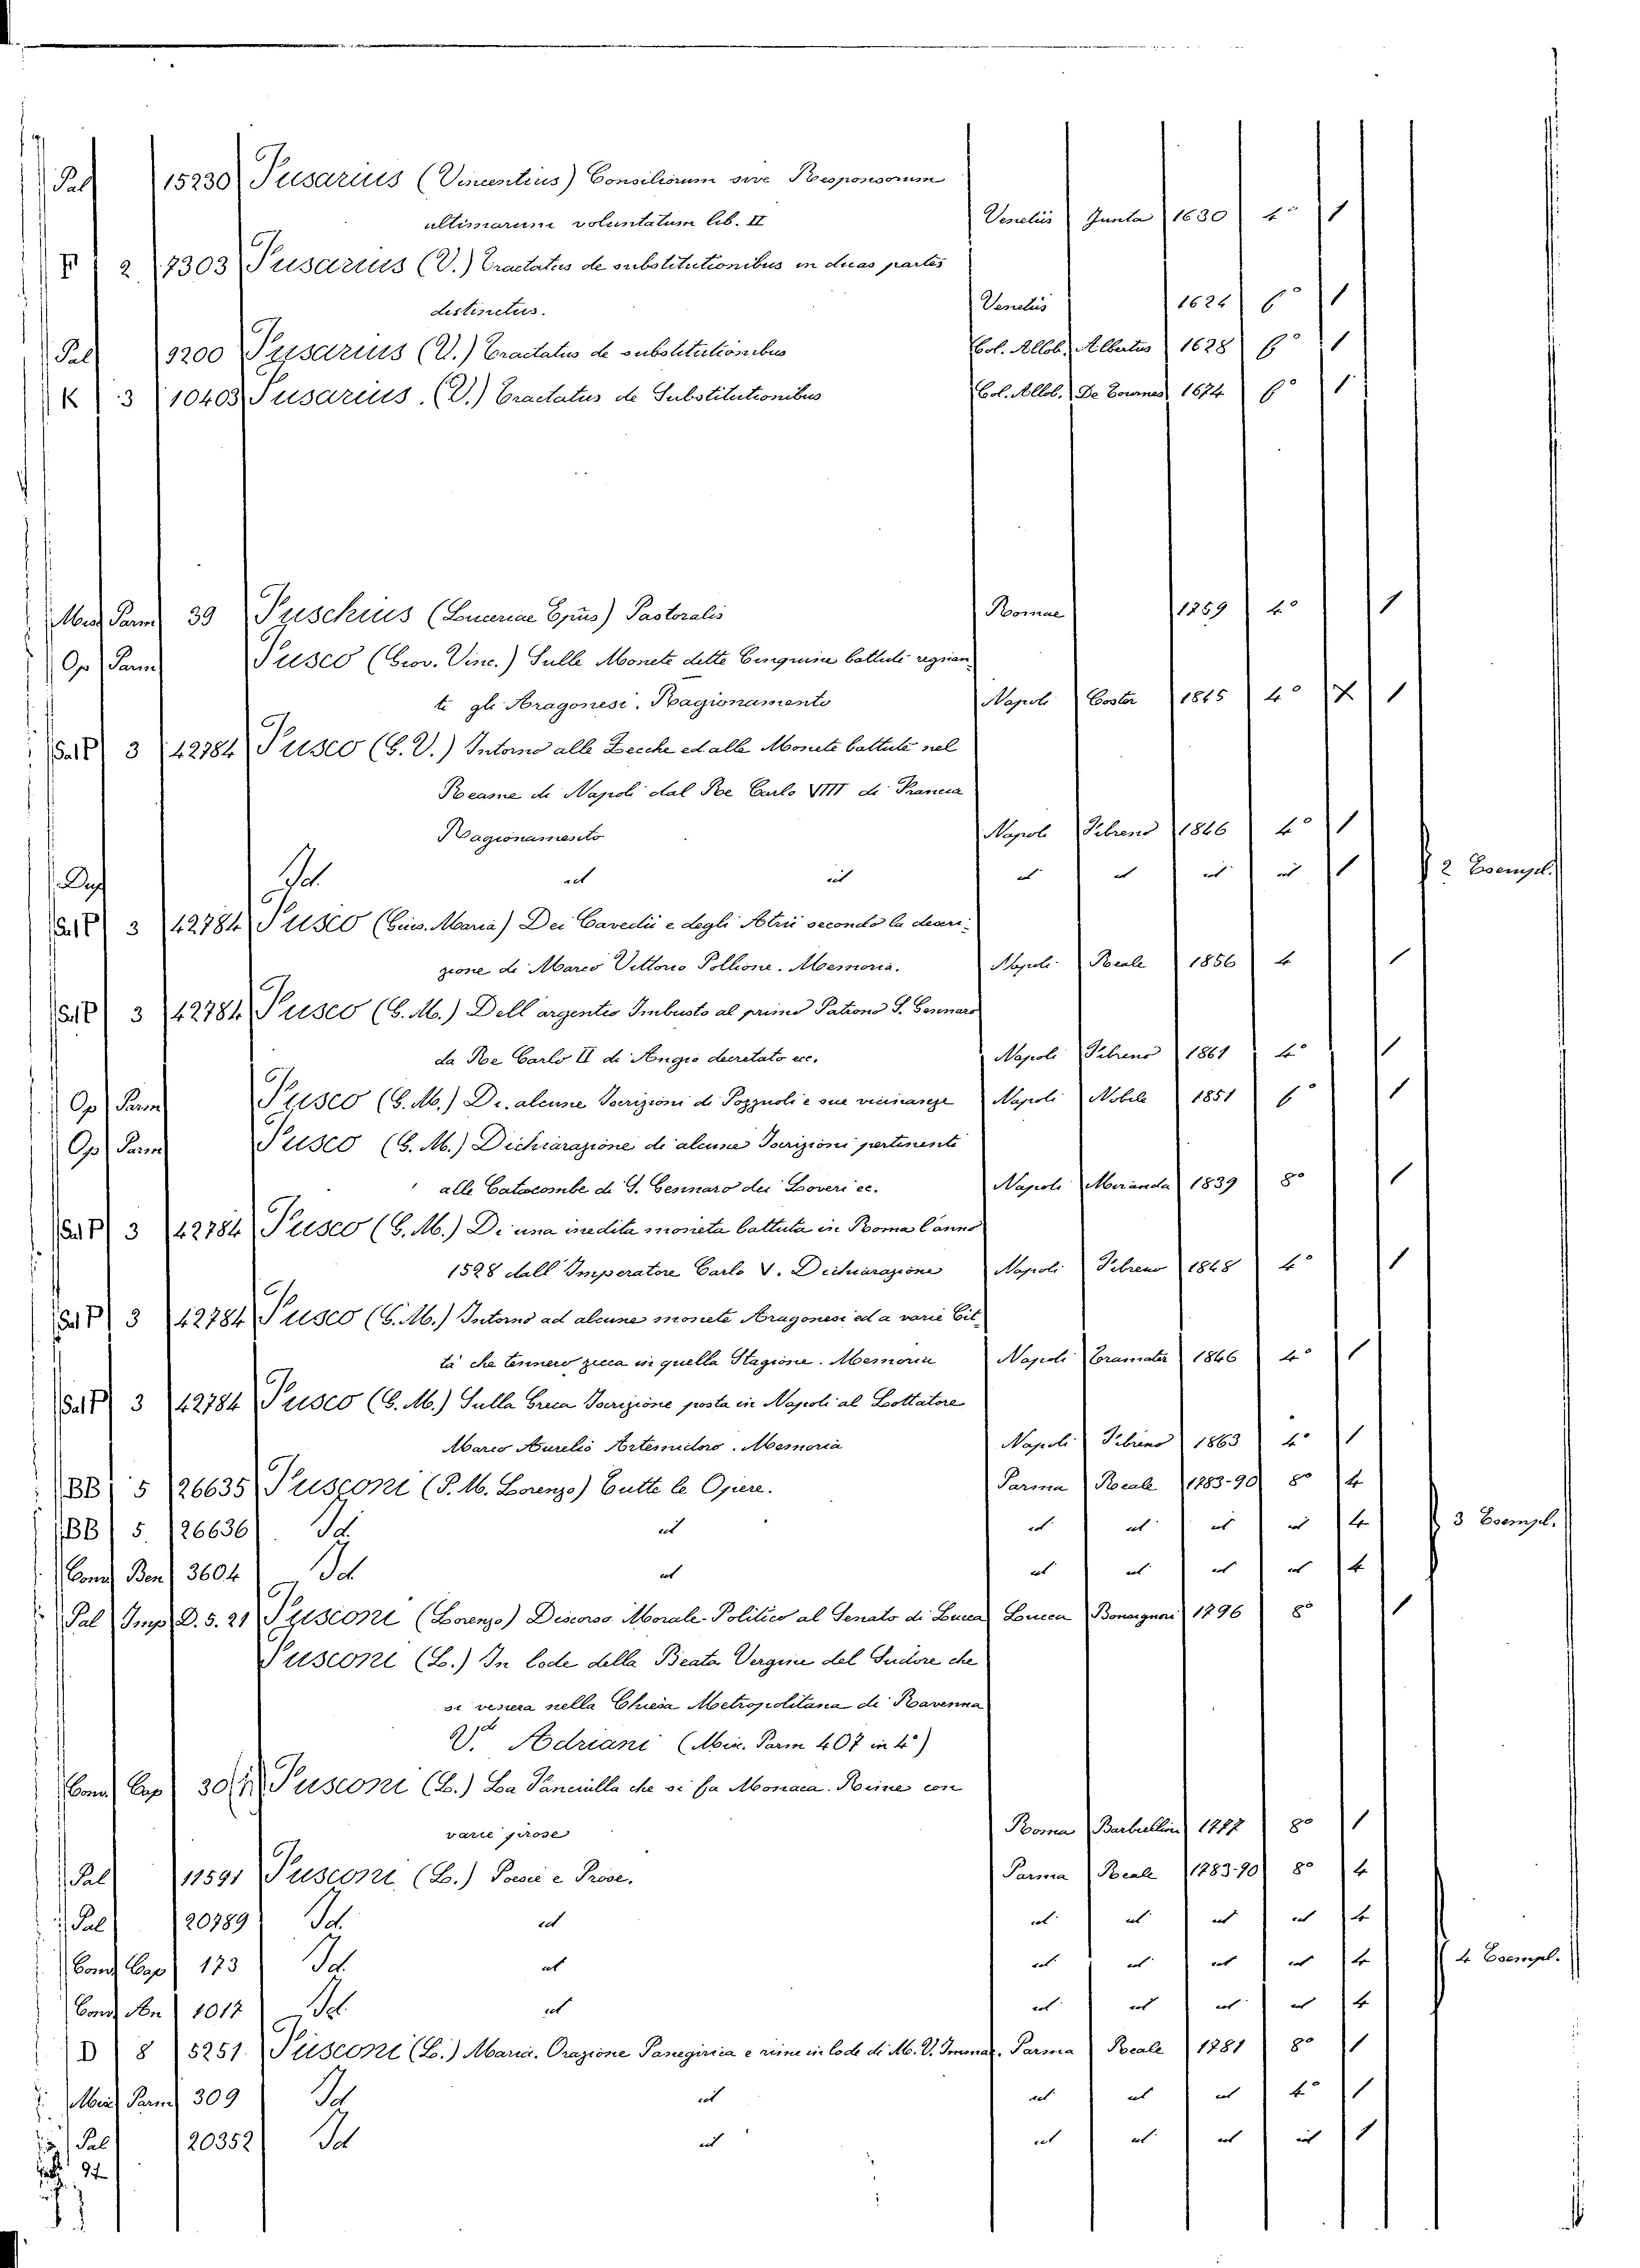 Pal 15230 Fusarius (Vincentius) Consiliorum sive Responsorum
ultimarum voluntatum lib. II Venetiis Junta 1630 4° 1
F 2 7303 Fusarius (V.) Tractatus de substitutionibus in duas partes
distinctus. Venetiis 1624 f° 1
Pal 9200 Fusarius (V.) Tractatus de substitutionibus Col. Allob. Albertus 1628 f° 1
K 3 10403 Fusarius. (V.) Tractatus de Substitutionibus Col. Allob. De Tournes 1674 f° 1
Misc Parm 39 Fuschius (Luceriae Epus) Pastoralis Romae 1759 4° 1
Op Parm Fusco (Giov. Vinc.) Sulle Monete dette Cinquine battute regnan
ti gli Aragonesi. Ragionamento Napoli Coster 1845 4° X 1
Sal P 3 42784 Fusco (G. V.) Intorno alle Zecche ed alle Monete battute nel
Reame di Napoli dal Re Carlo VIII di Francia
Ragionamento Napoli Fibreno 1846 4° 1
Dup Id. id id id id id id 1 2 Esempl.
Sal P 3 42784 Fusco (Gius. Maria) Dei Cavedii e degli Atrii secondo la descri-
zione di Marco Vittorio Pollione. Memoria. Napoli Reale 1856 4 1
Sal P 3 42784 Fusco (G. M.) Dell'argenteo Imbusto al primo Patrono S. Gennaro
da Re Carlo II di Angiò decretato ecc. Napoli Fibreno 1861 4° 1
Op Parm Fusco (G. M.) Di alcune Iscrizioni di Pozzuoli e sue vicinanze Napoli Nobile 1851 f° 1
Op Parm Fusco (G. M.) Dichiarazione di alcune Iscrizioni pertinenti
alle Catacombe di S. Gennaro dei Poveri ec. Napoli Miranda 1839 8° 1
Sal P 3 42784 Fusco (G. M.) Di una inedita moneta battuta in Roma l'anno
1528 dall'Imperatore Carlo V. Dichiarazione Napoli Fibreno 1848 4° 1
Sal P 3 42784 Fusco (G. M.) Intorno ad alcune monete Aragonesi ed a varie Cit
tà che tennero zecca in quella Stagione. Memoria Napoli Tramater 1846 4° 1
Sal P 3 42784 Fusco (G. M.) Sulla Greca Iscrizione posta in Napoli al Lottatore
Marco Aurelio Artemidoro. Memoria Napoli Fibreno 1863 4° 1
BB 5 26635 Fusconi (P. M. Lorenzo) Tutte le Opere. Parma Reale 1783-90 8° 4
BB 5 26636 Id. id id id id id 4 3 Esempl.
Conv Ben 3604 Id id id id id id 4
Pal Imp D. 5. 21 Fusconi (Lorenzo) Discorso Morale-Politico al Senato di Lucca Lucca Bonsignori 1796 8° 1
Fusconi (L.) In lode della Beata Vergine del Sudore che
si venera nella Chiesa Metropolitana di Ravenna
V.d Adriani (Misc. Parm 407 in 4°)
Conv Cap 30 Fusconi (L.) La Fanciulla che si fa Monaca. Rime con
varie prose Roma Barbiellini 1777 8° 1
Pal 11591 Fusconi (L.) Poesie e Prose. Parma Reale 1783-90 8° 4
Pal 20789 Id. id id id id id 4
Conv Cap 173 Id. id id id id id 4 4 Esempl.
Conv An 1017 Id. id id id id id 4
D 8 5251 Fusconi (L.) Maria. Orazione Panegirica e rime in lode di M. V. Immac. Parma Reale 1781 8° 1
Misc Parm 309 Id id id id id 4° 1
Pal 20352 Id id id id id id 1